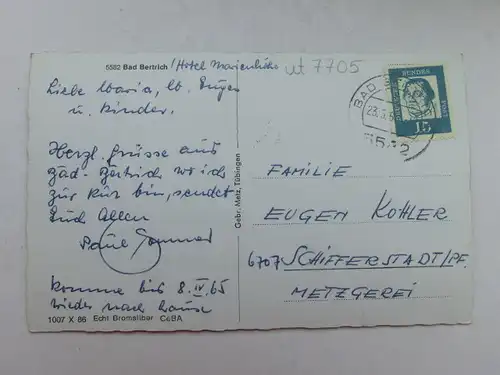 5582 Bad Bertrich / Hotel Marienhöhe
ut 7705
Liebe Maria, lb. Eugen
u. Kinder.
Herzl. Grüsse aus
Bad-Bertrich wo ich
zur Kur bin, sendet
Euch Allen
Paul Sommer
komme bis 8.IV.65
wieder nach Hause
1007 X 86 Echt Bromsilber CeBA
Gebr. Metz, Tübingen
BAD
23.3.6
DEUTSCHE BUNDES POST
15
FAMILIE
EUGEN KOHLER
6707 SCHIFFERSTADT/PF.
METZGEREI